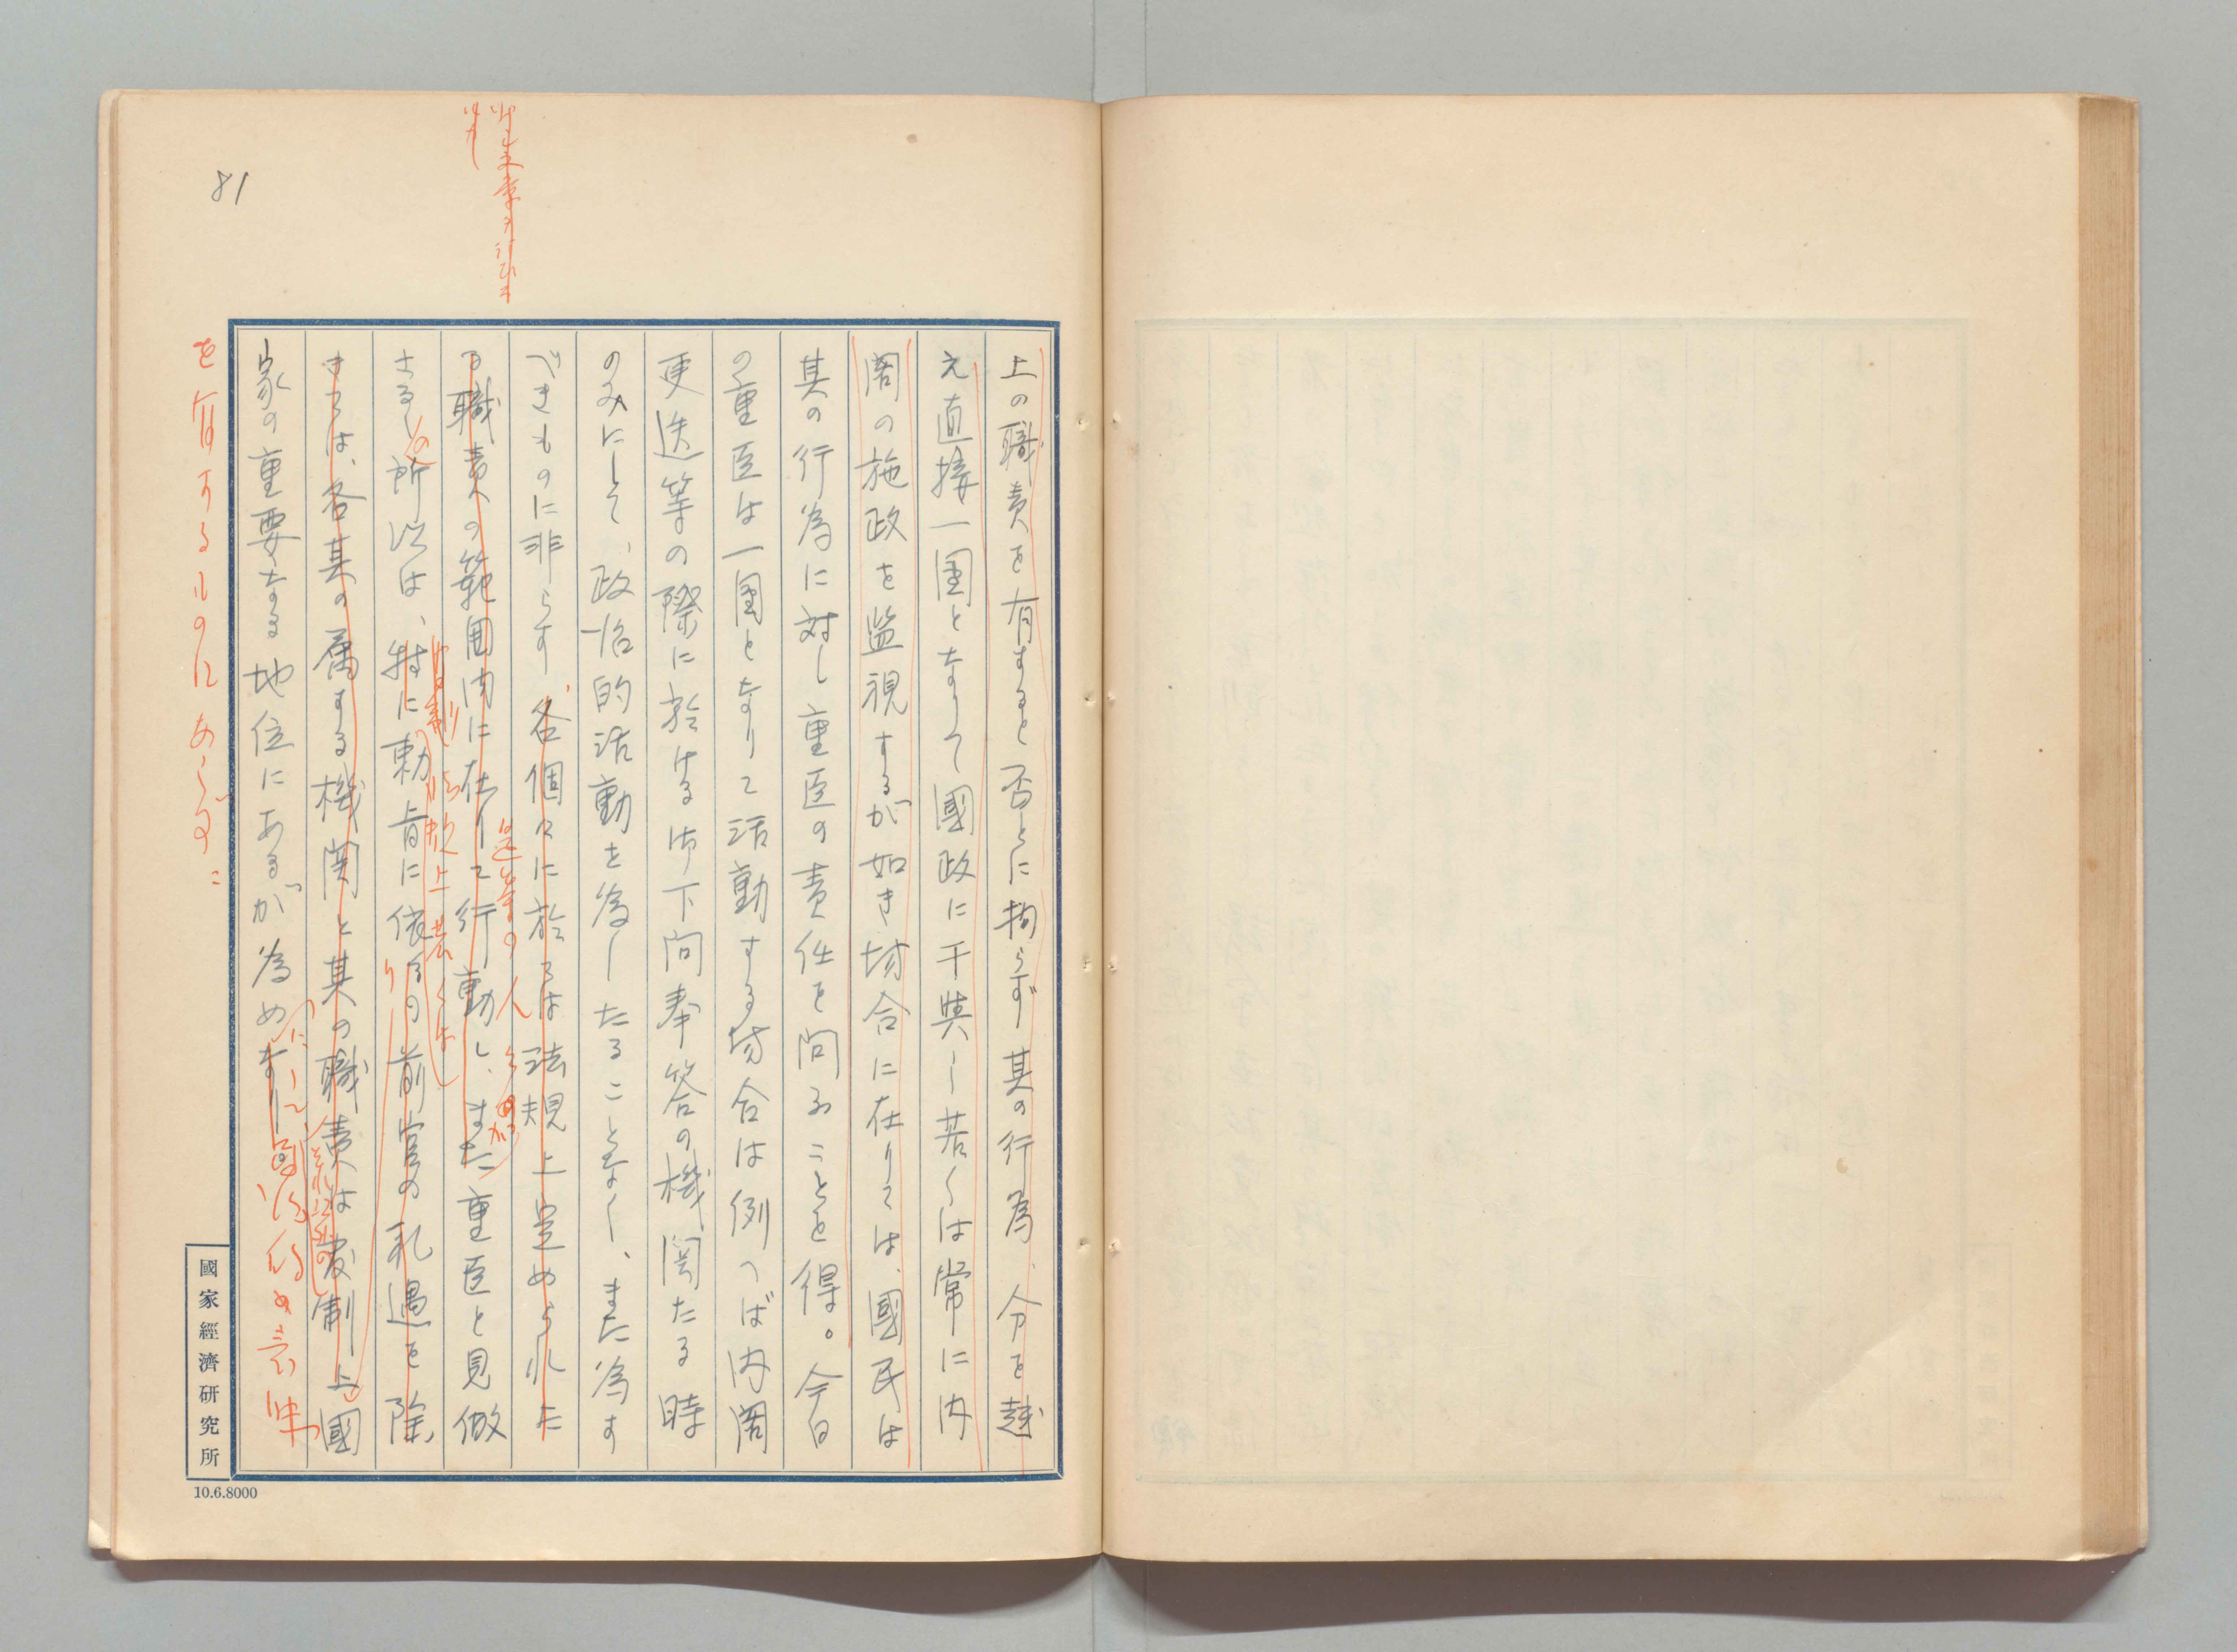 81
上の職責を有すると否とに拘らず其の行為、分を越
え直接一団となりて國政に干與し若くは常に内
閣の施政を監視するが如き場合に在りては、國民は
其の行為に対し重臣の責任を問ふことを得。今日
の重臣は一團となりて活動する場合は例へば内閣
更迭等の際に於ける御下問奉答の機関たる時
のみにして、政治的活動を為したることなく、また為す
べきものに非らす、各個々に於ては法規上定められた
是等の人々
る職責の範囲内に在りて行動し、また重臣と見做
が
官制法規上若くは
さるゝの所以は、特に勅旨に依るの前官の礼遇を除
り
きては、各其の属する機関と其の職責は官制上國
家の重要なる地位にあるが為めなり
にして
意味
を有するものにあらず
國家經濟研究所
10.6.8000